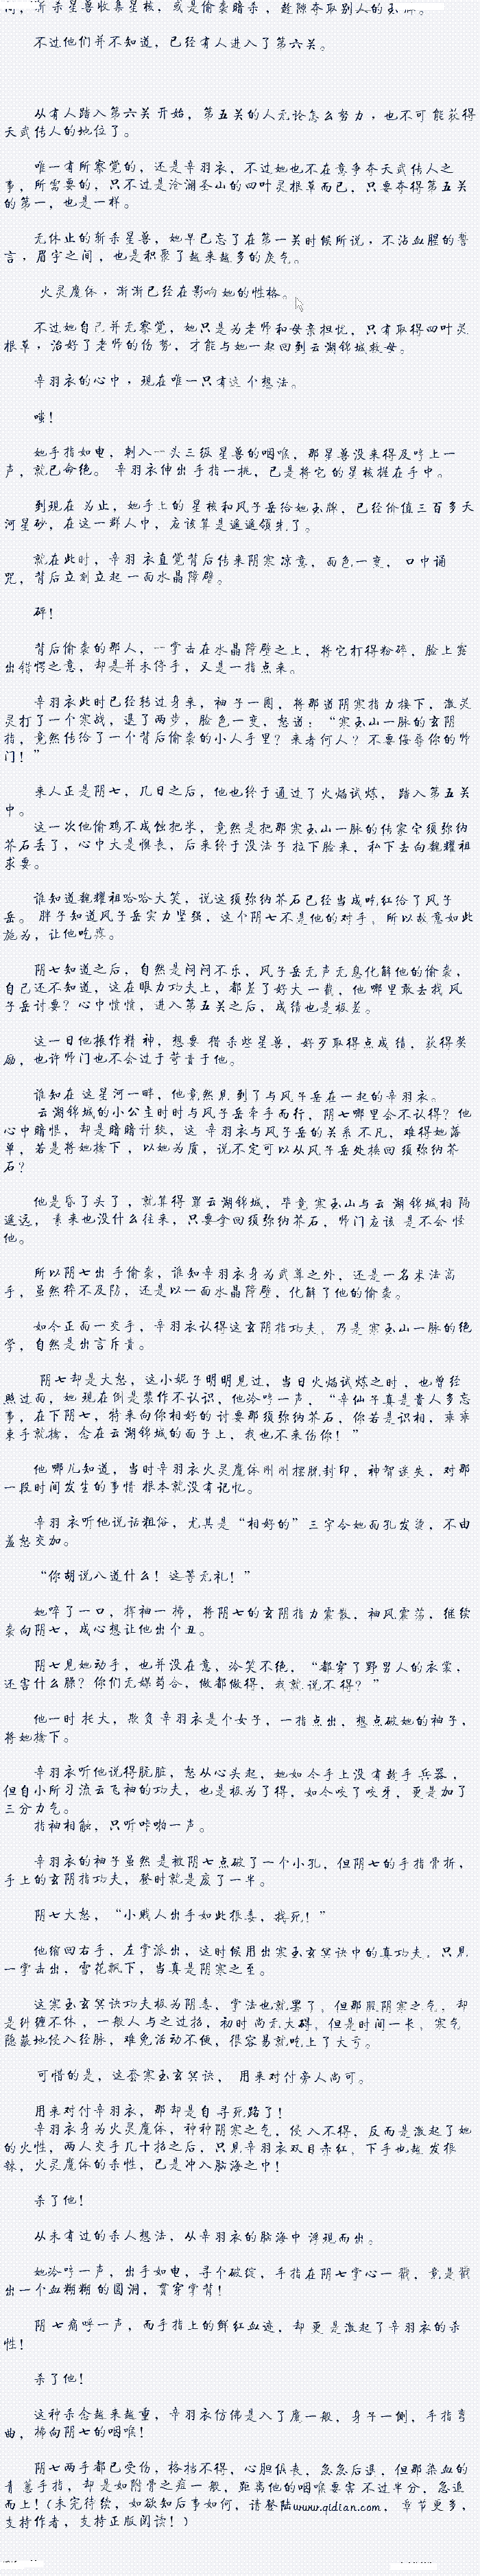 不过他们并不知道，已经有人进入了第六关。
从有人踏入第六关开始，第五关的人无论怎么努力，也不可能获得
天武传人的地位了。
唯一有所察觉的，还是辛羽衣，不过她也不在意争夺天武传人之
事，所需要的，只不过是沧澜圣山的四叶灵根草而已，只要夺得第五关
的第一，也是一样。
无休止的斩杀星兽，她早已忘了在第一关时候所说，不沾血腥的誓
言，眉宇之间，也是积聚了越来越多的戾气。
火灵魔体，渐渐已经在影响她的性格。
不过她自己并无察觉，她只是为老师和母亲担忧，只有取得四叶灵
根草，治好了老师的伤势，才能与她一起回到云湖锦城救母。
辛羽衣的心中，现在唯一只有这个想法。
嗤！
她手指如电，刺入一头三级星兽的咽喉，那星兽没来得及哼上一
声，就已命绝。 辛羽衣伸出手指一挑，已是将它的星核握在手中。
到现在为止，她手上的星核和风子岳给她玉牌，已经价值三百多天
河星砂，在这一群人中，应该算是遥遥领先了。
就在此时，辛羽衣直觉背后传来阴寒凉意，面色一变， 口中诵
咒，背后立刻立起一面水晶障壁。
砰！
背后偷袭的那人，一掌击在水晶障壁之上，将它打得粉碎，脸上露
出错愕之意，却是并未停手，又是一指点来。
辛羽衣此时已经转过身来，袖子一圈，将那道阴寒指力接下，激灵
灵打了一个寒战，退了两步，脸色一变，怒道：“寒玉山一脉的玄阴
指，竟然传给了一个背后偷袭的小人手里？来者何人？不要侮辱你的师
门！”
来人正是阴七，几日之后，他也终于通过了火焰试炼， 踏入第五关
中。
这一次他偷鸡不成蚀把米，竟然是把那寒玉山一脉的传家宝须弥纳
芥石丢了，心中大是懊丧，后来终于没法子拉下脸来，私下去向魏耀祖
求要。
谁知道魏耀祖哈哈大笑，说这须弥纳芥石已经当成吃红给了风子
岳。 胖子知道风子岳实力坚强，这个阴七不是他的对手，所以故意如此
施为，让他吃瘪。
阴七知道之后，自然是闷闷不乐，风子岳无声无息化解他的偷袭，
自己还不知道，这在眼力功夫上，都差了好大一截，他哪里敢去找风
子岳讨要？心中愤愤，进入第五关之后，成绩也是极差。
这一日他振作精神，想要 猎杀些星兽，好歹取得点成绩，获得奖
励，也许师门也不会过于苛责于他。
谁知在这星河一畔，他竟然见到了与风子岳在一起的辛羽衣。
云湖锦城的小公主时时与风子岳牵手而行，阴七哪里会不认得？他
心中暗恨，却是暗暗计较，这 辛羽衣与风子岳的关系不凡，难得她落
单，若是将她擒下，以她为质，说不定可以从风子岳处换回须弥纳芥
石？
他是昏了头了，就算得罪云湖锦城，毕竟寒玉山与云湖锦城相隔
遥远，素来也没什么往来，只要拿回须弥纳芥石，师门应该 是不会怪
他。
所以阴七出手偷袭，谁知辛羽衣身为武尊之外，还是一名术法高
手，虽然猝不及防，还是以一面水晶障壁，化解了他的偷袭。
如今正面一交手，辛羽衣认得这玄阴指功夫，乃是寒玉山一脉的绝
学，自然是出言斥责。
阴七却是大怒，这小妮子明明见过，当日火焰试炼之时，也曾经
照过面，她现在倒是装作不认识，他冷哼一声，“辛仙子真是贵人多忘
事，在下阴七，特来向你相好的讨要那须弥纳芥石，你若是识相，乖乖
束手就擒，念在云湖锦城的面子上，我也不来伤你！”
他哪儿知道，当时辛羽衣火灵魔体刚刚摆脱封印，神智迷失，对那
一段时间发生的事情根本就没有记忆。
辛羽衣听他说话粗俗，尤其是“相好的”三字令她面孔发烫，不由
羞怒交加。
“你胡说八道什么！这等无礼！”
她啐了一口，挥袖一拂，将阴七的玄阴指力震散，袖风震荡，继续
袭向阴七，成心想让他出个丑。
阴七见她动手，也并没在意，冷笑不绝，“都穿了野男人的衣裳，
还害什么臊？你们无媒苟合，做都做得，我就说不得？”
他一时托大，欺负辛羽衣是个女子，一指点出，想点破她的袖子，
将她擒下。
辛羽衣听他说得肮脏，怒从心头起，她如今手上没有趁手兵器，
但自小所习流云飞袖的功夫，也是极为了得，如今咬了咬牙，更是加了
三分力气。
指袖相触，只听咔啪一声。
辛羽衣的袖子虽然是被阴七点破了一个小孔，但阴七的手指骨折，
手上的玄阴指功夫，登时就是废了一半。
阴七大怒，“小贱人出手如此狠毒，找死！”
他缩回右手，左掌派出，这时候用出寒玉玄冥诀中的真功夫，只见
一掌击出，雪花飘下，当真是阴寒之至。
这寒玉玄冥诀功夫极为阴毒，掌法也就罢了，但那股阴寒之气，却
是纠缠不休，一般人与之过招，初时尚无大碍，但是时间一长，寒气
隐蔽地侵入经脉，难免活动不便，很容易就吃上了大亏。
可惜的是，这套寒玉玄冥诀， 用来对付旁人尚可。
用来对付辛羽衣，那却是自寻死路了！
辛羽衣身为火灵魔体，种种阴寒之气，侵入不得，反而是激起了她
的火性，两人交手几十招之后，只见辛羽衣双目赤红，下手也越发狠
辣，火灵魔体的杀性，已是冲入脑海之中！
杀了他！
从未有过的杀人想法，从辛羽衣的脑海中浮现而出。
她冷哼一声，出手如电，寻个破绽，手指在阴七掌心一戳，竟是戳
出一个血糊糊的圆洞，贯穿掌背！
阴七痛呼一声，而手指上的鲜红血迹，却更是激起了辛羽衣的杀
性！
杀了他！
这种杀念越来越重，辛羽衣仿佛是入了魔一般，身子一侧，手指弯
曲，拂向阴七的咽喉！
阴七两手都已受伤，格挡不得，心胆俱丧，急急后退，但那染血的
青葱手指，却是如附骨之疽一般，距离他的咽喉要害不过半分，急追
而上！(未完待续，如欲知后事如何，请登陆www.qidian.com， 章节更多，
支持作者，支持正版阅读！)